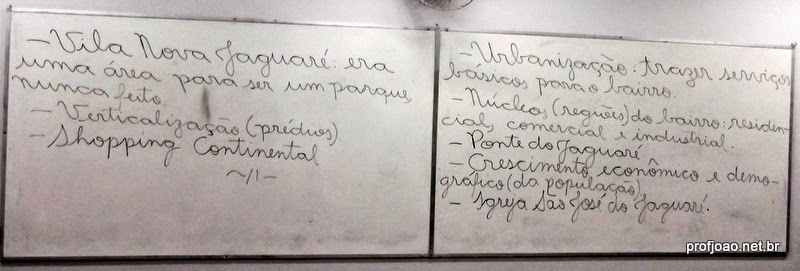 - Vila Nova Jaguaré: era
uma área para ser um parque,
nunca feito.
- Verticalização (prédios)
- Shopping Continental
~//-
- Urbanização: trazer serviços
básicos para o bairro.
- Núcleos (regiões) do bairro: residen-
cial, comercial e industrial.
- Ponte do Jaguaré
- Crescimento econômico e demo-
gráfico (da população)
- Igreja São José do Jaguaré.
profjoao.net.br